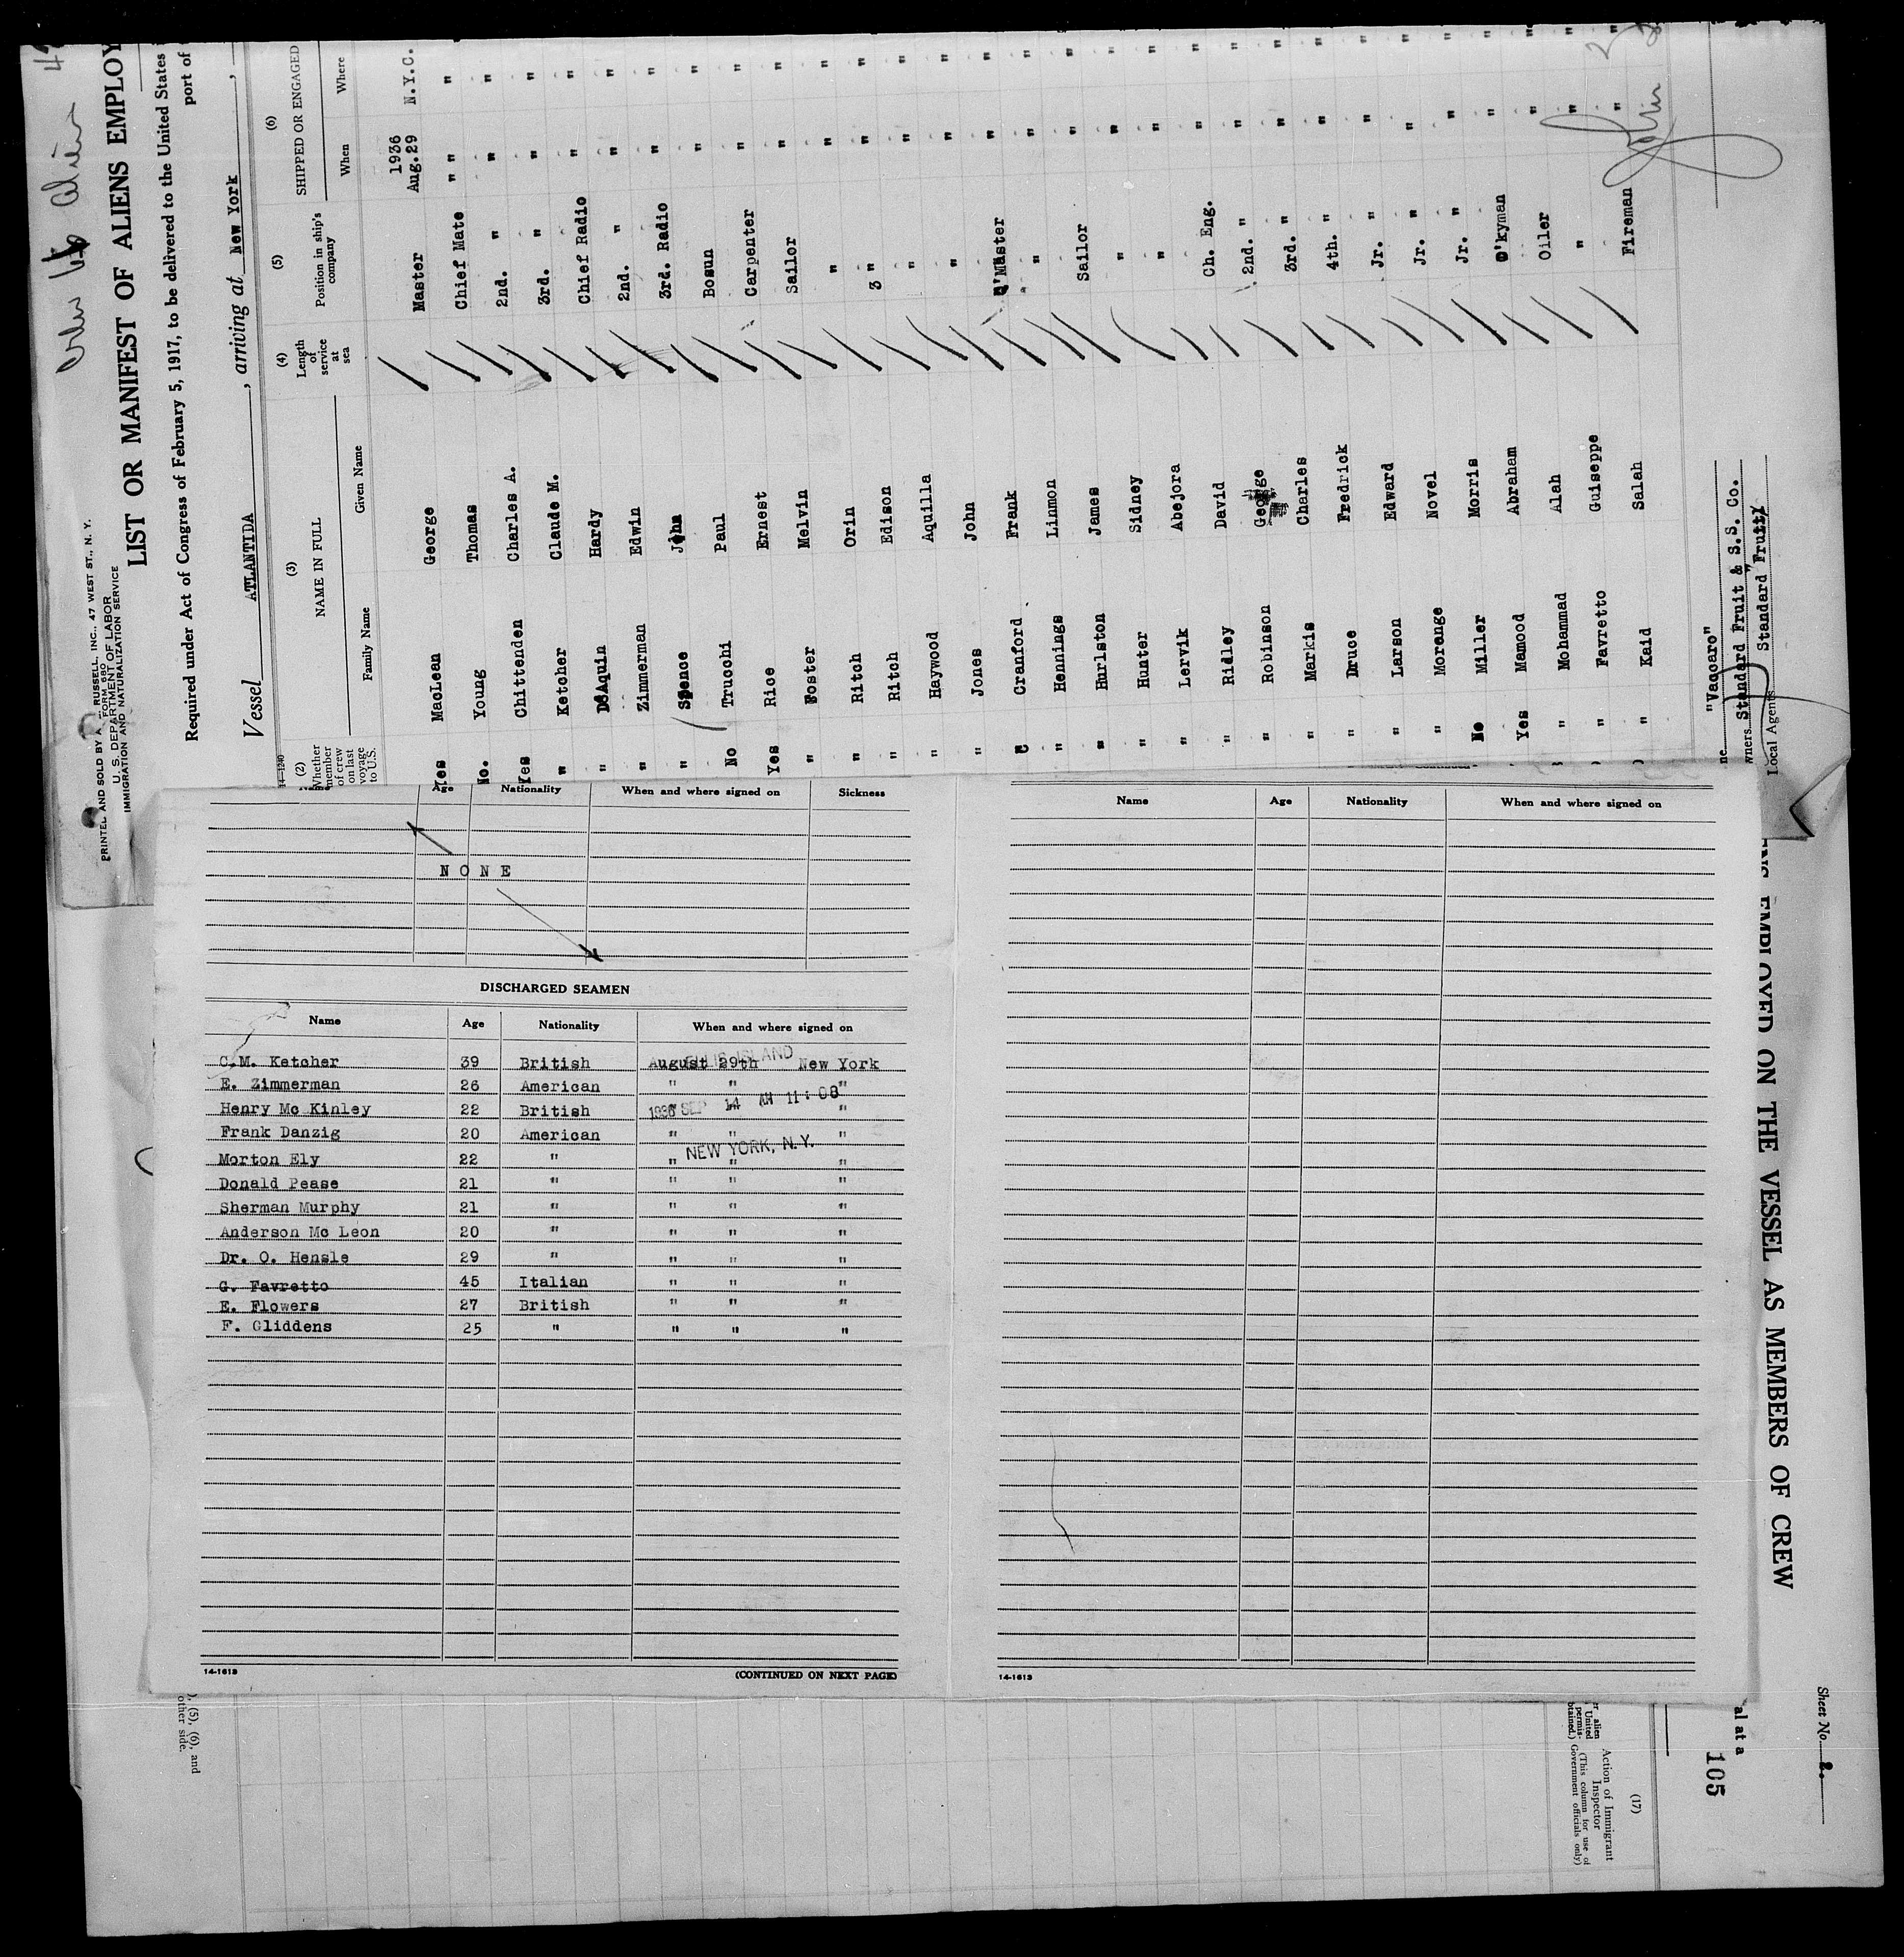 PRINTED AND SOLD BY A. RUSSELL, INC., 47 WEST ST., N. Y.
FORM 680
U. S. DEPARTMENT OF LABOR
IMMIGRATION AND NATURALIZATION SERVICE
LIST OR MANIFEST OF ALIENS EMPLOY
Required under Act of Congress of February 5, 1917, to be delivered to the United States
port of
Vessel ATLANTIDA , arriving at New York ,
14-1240
(2) Whether member of crew on last voyage to U.S. (3) NAME IN FULL (4) Length of service at sea (5) Position in ship's company (6) SHIPPED OR ENGAGED
Family Name Given Name When Where
1936
Yes MacLean George Master Aug.29 N.Y.C.
No. Young Thomas Chief Mate " " "
Yes Chittenden Charles A. 2nd. " " "
" Ketcher Claude M. 3rd. " " "
" DeAquin Hardy Chief Radio " "
" Zimmerman Edwin 2nd. " " "
" Spence John 3rd. Radio " "
No Trucchi Paul Bosun " "
Yes Rice Ernest Carpenter " "
" Foster Melvin Sailor " "
" Ritch Orin " " "
" Ritch Edison 3 " " "
" Haywood Aquilla " " "
" Jones John " " "
" Cranford Frank Q'Master " "
" Hennings Linmon " " "
" Hurlston James Sailor " "
" Hunter Sidney " " "
" Lervik Abejora " " "
" Ridley David Ch. Eng. " "
" Robinson George 2nd. " " "
" Markis Charles 3rd. " " "
" Druce Fredrick 4th. " " "
" Larson Edward Jr. " " "
" Morenge Novel Jr. " " "
No Miller Morris Jr. " " "
Yes Mamood Abraham D'kyman " "
" Mohammad Alah Oiler " "
" Favretto Guiseppe " " "
" Kaid Salah Fireman " "
"Vaccaro"
wners Standard Fruit & S.S. Co.
Local Agents Standard Fruit
Age Nationality When and where signed on Sickness
NONE
DISCHARGED SEAMEN
Name Age Nationality When and where signed on
C.M. Ketcher 39 British August 29th New York
E. Zimmerman 26 American " " "
Henry Mc Kinley 22 British " " "
Frank Danzig 20 American " " "
Morton Ely 22 " " " "
Donald Pease 21 " " " "
Sherman Murphy 21 " " " "
Anderson Mc Leon 20 " " " "
Dr. O. Hensle 29 " " " "
G. Favretto 45 Italian " " "
E. Flowers 27 British " " "
F. Gliddens 25 " " " "
ELLIS ISLAND
1936 SEP 14 AM 11:08
NEW YORK, N.Y.
14-1613
(CONTINUED ON NEXT PAGE)
Name Age Nationality When and where signed on
14-1613
EMPLOYED ON THE VESSEL AS MEMBERS OF CREW
Sheet No. 2.
al at a
105
(17)
Action of Immigrant Inspector
(This column for use of Government officials only)
r alien
United
permis-
btained.)
), (5), (6), and
other side.